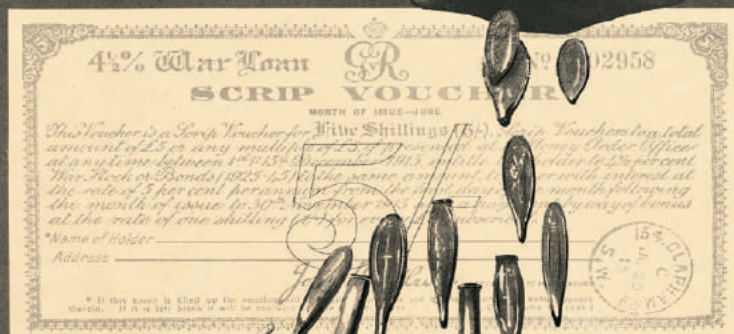 4½% War Loan GvR No 02958
SCRIP VOUCHER
MONTH OF ISSUE—JUNE
This Voucher is a Scrip Voucher for Five Shillings (5/-). Scrip Vouchers to a total
amount of £5 or any multiple of £5 if presented at a Money Order Office
at any time between 1st & 15th December 1915, entitle holder to 4½ per cent
War Stock or Bonds (1925-45) to the same amount, together with interest at
the rate of 5 per cent per annum from the 1st day of the month following
the month of issue to 30th November 1915 and by way of bonus
at the rate of one shilling
*Name of Holder
Address
5/-
* If this space is filled up the voucher
therein. If it is left blank it will be
CLAPHAM
S.W.